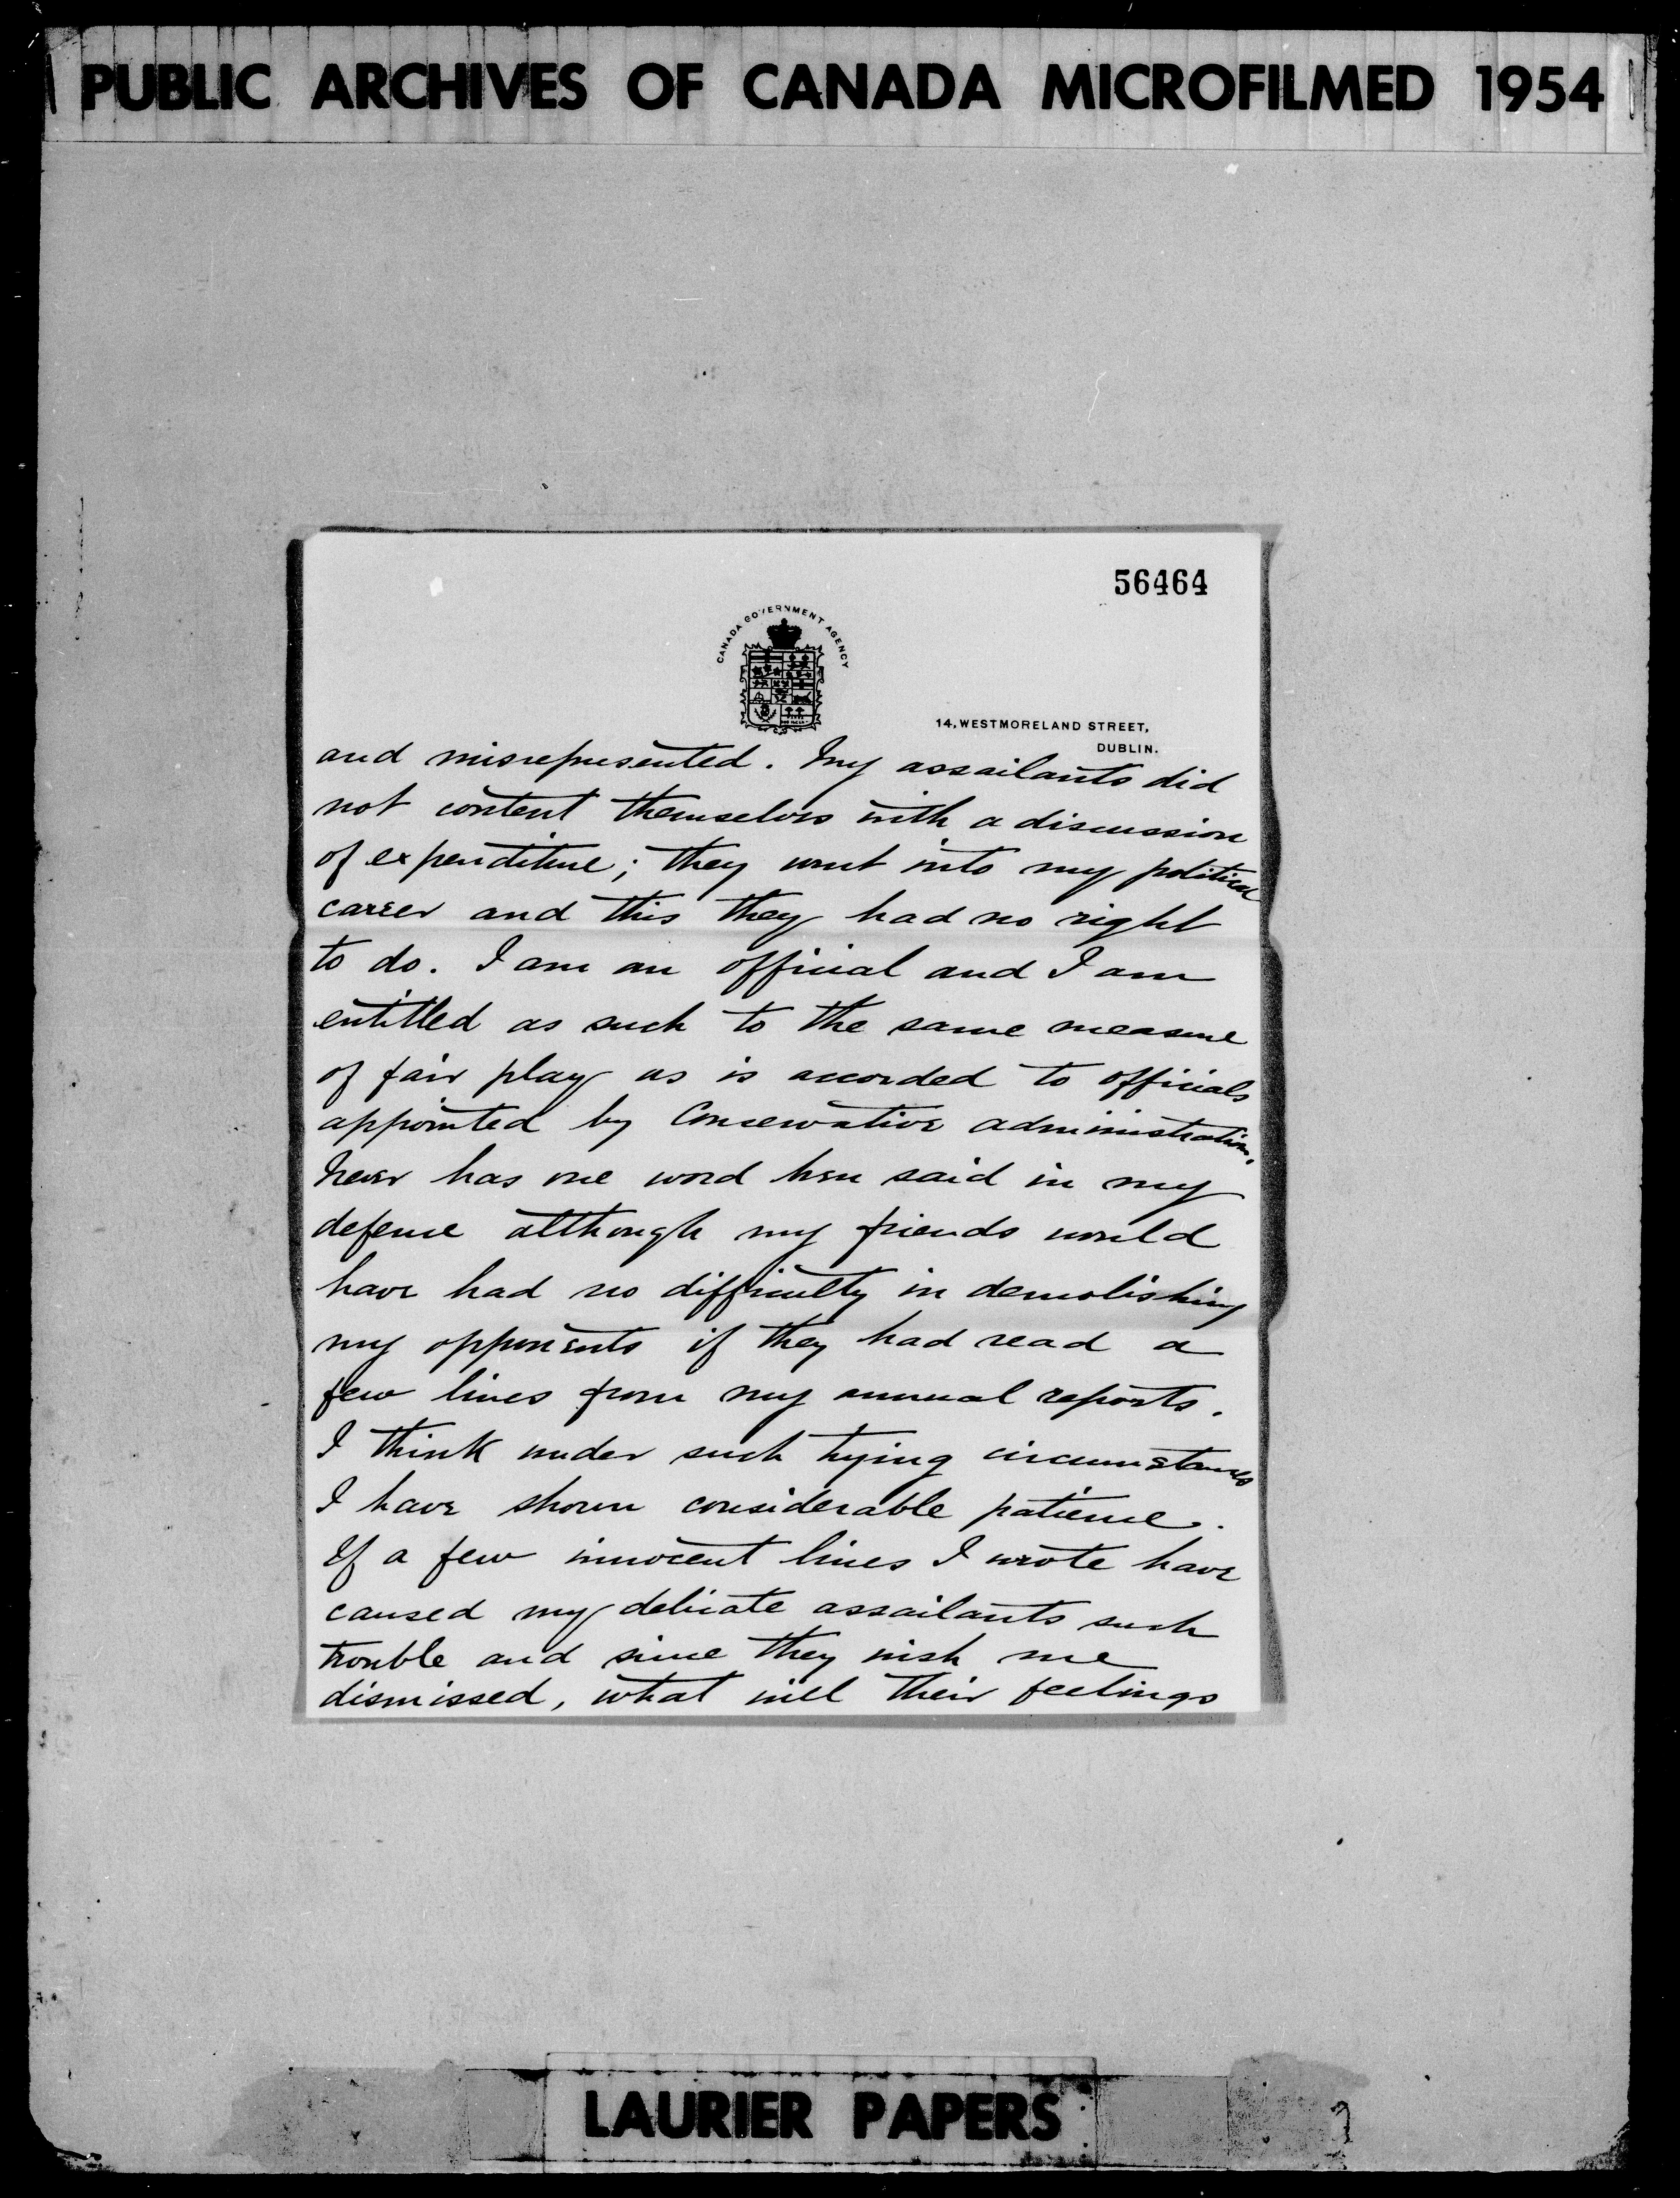 PUBLIC ARCHIVES OF CANADA MICROFILMED 1954
56464
CANADA GOVERNMENT AGENCY
14, WESTMORELAND STREET,
DUBLIN.
and misrepresented. My assailants did
not content themselves with a discussion
of expenditure; they went into my political
career and this they had no right
to do. I am an official and I am
entitled as such to the same measure
of fair play as is accorded to officials
appointed by Conservative administrations.
Never has one word been said in my
defense although my friends would
have had no difficulty in demolishing
my opponents if they had read a
few lines from my annual reports.
I think under such trying circumstances
I have shown considerable patience.
If a few innocent lines I wrote have
caused my delicate assailants such
trouble and since they wish me
dismissed, what will their feelings
LAURIER PAPERS